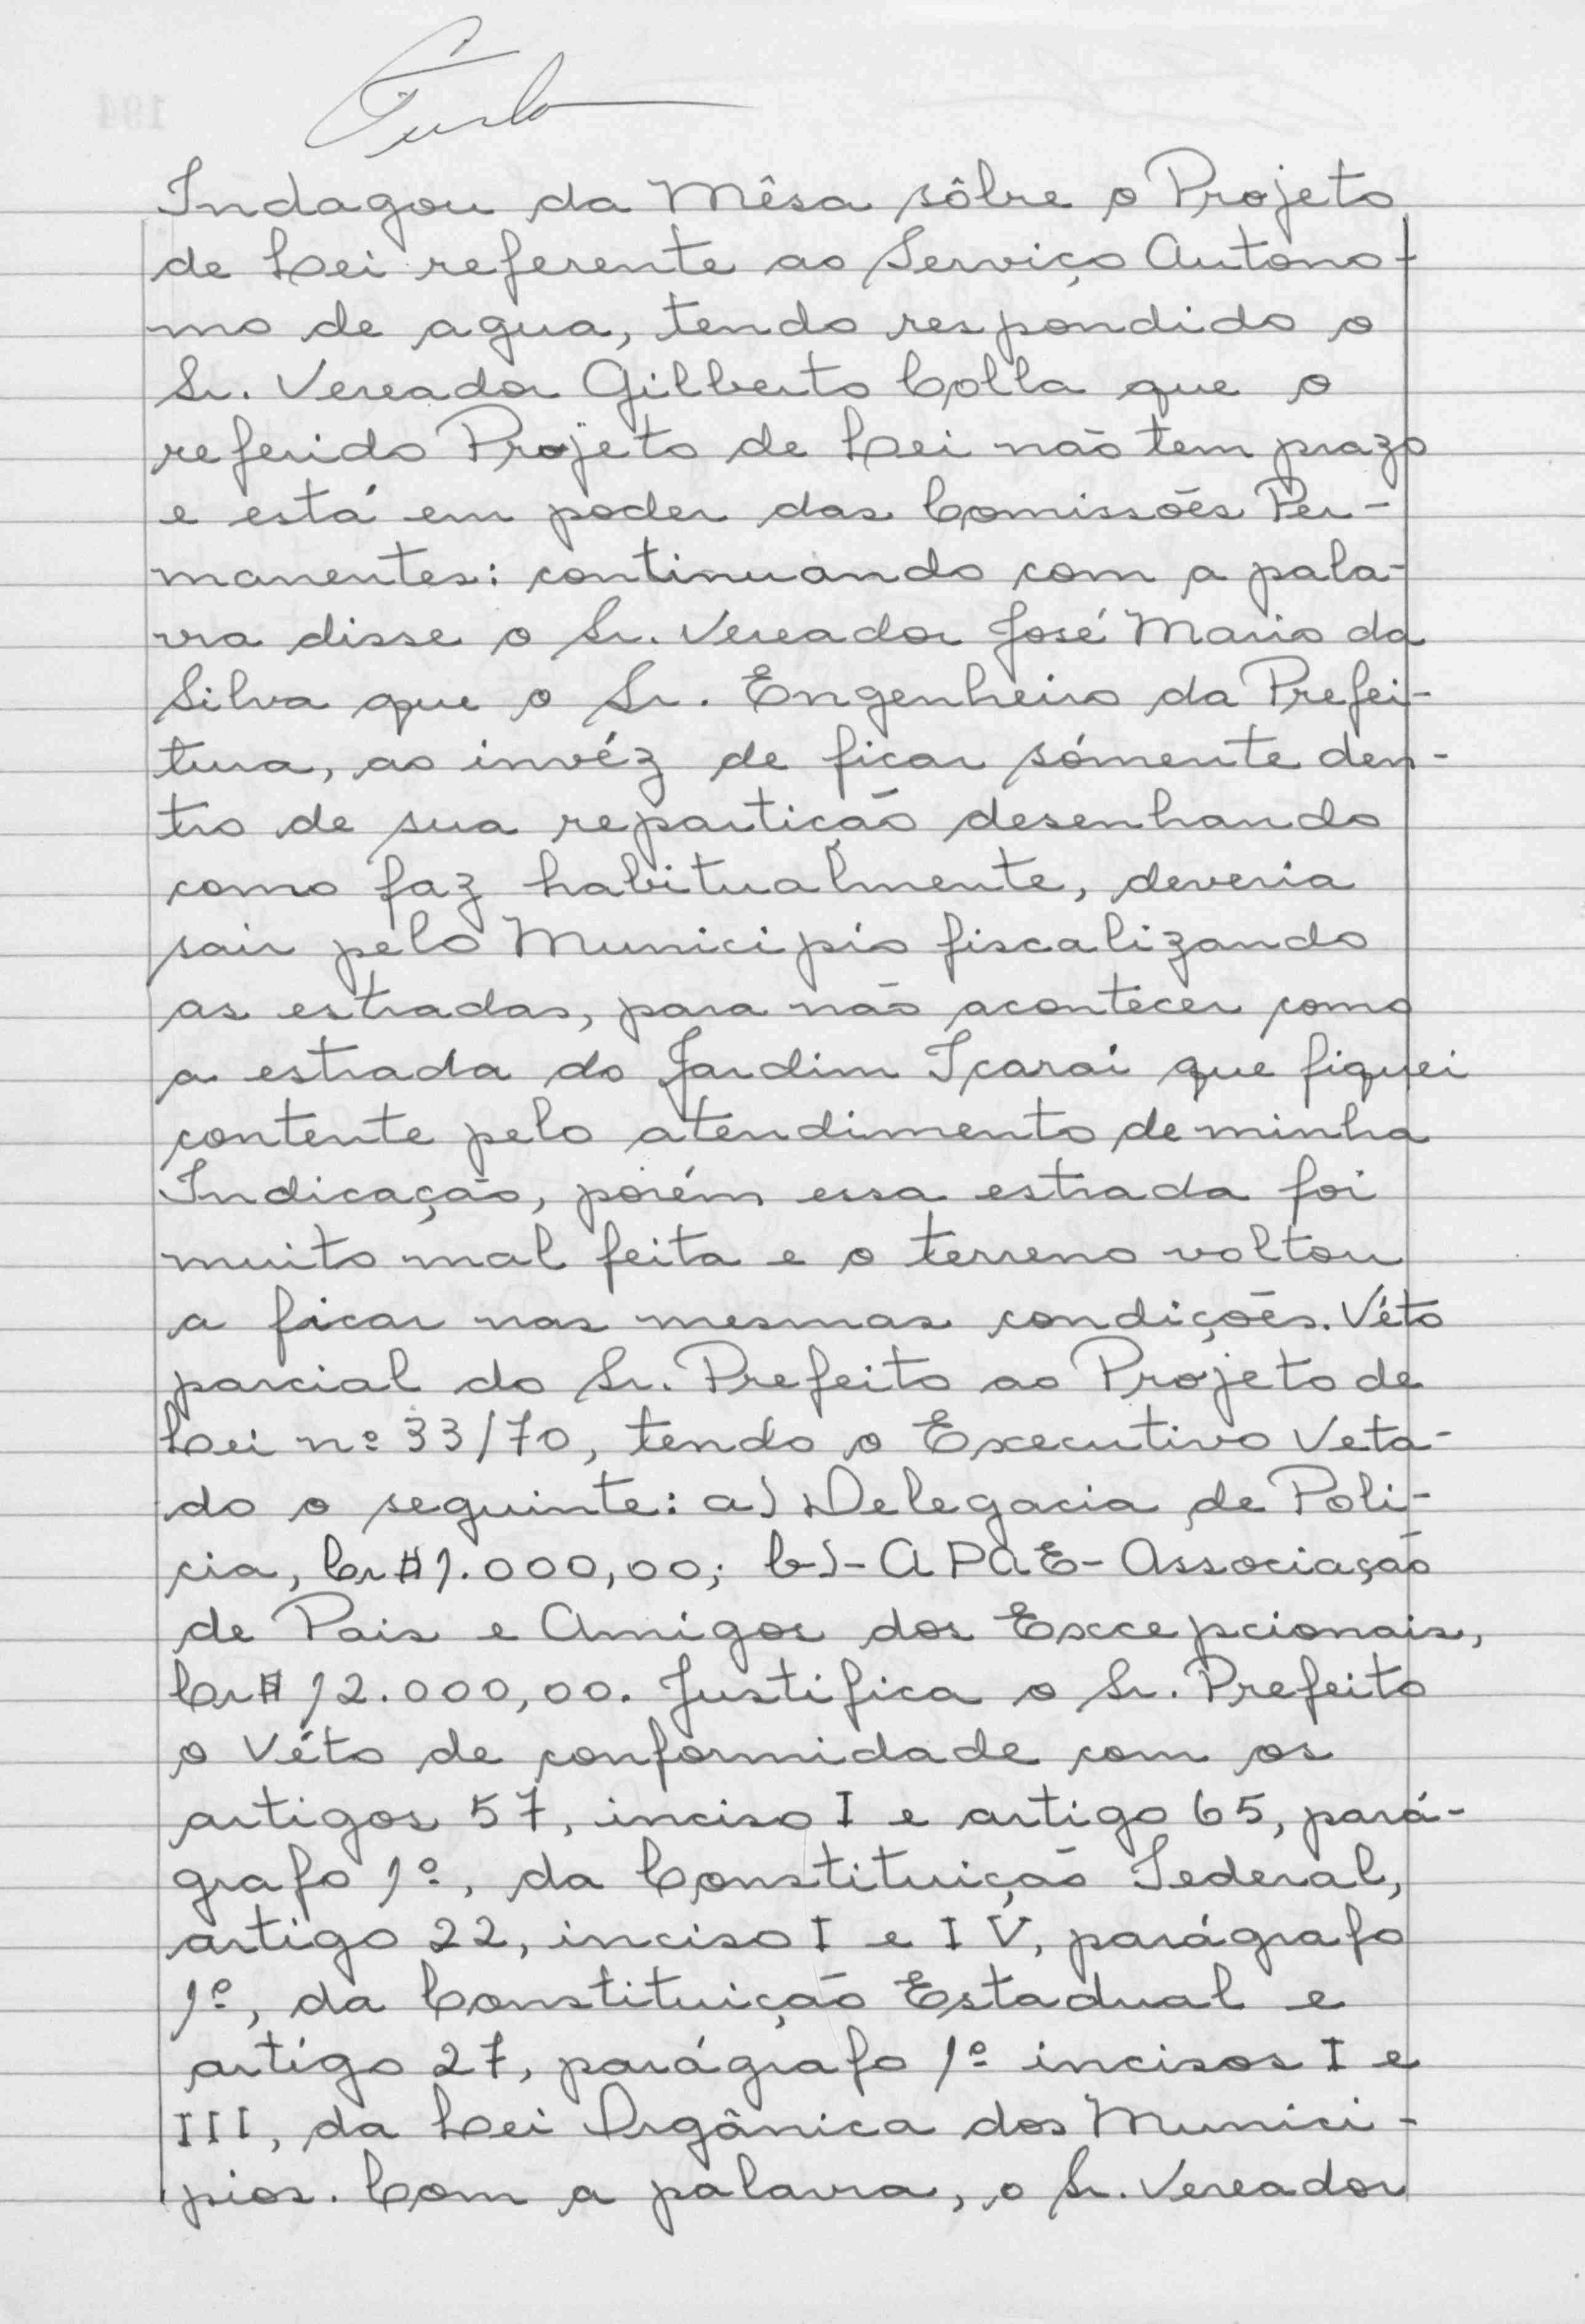 Indagou da Mêsa sôbre o Projeto
de Lei referente ao Serviço Autono-
mo de agua, tendo respondido o
Sr. Vereador Gilberto Colla que o
referido Projeto de Lei não tem prazo
e está em poder das Comissões Per-
manentes: continuando com a pala-
vra disse o Sr. Vereador José Mario da
Silva que o Sr. Engenheiro da Prefei-
tura, ao invéz de ficar sómente den-
tro de sua repartição desenhando
como faz habitualmente, deveria
sair pelo Municipio fiscalizando
as estradas, para não acontecer como
a estrada do Jardim Içarai que fiquei
contente pelo atendimento de minha
Indicação, porém essa estrada foi
muito mal feita e o terreno voltou
a ficar nas mesmas condições. Véto
parcial do Sr. Prefeito ao Projeto de
Lei nº 33/70, tendo o Executivo Veta-
do o seguinte: a) Delegacia de Poli-
cia, Cr$1.000,00; b)- APAE- Associação
de Pais e Amigos dos Excepcionais,
Cr$ 12.000,00. Justifica o Sr. Prefeito
o Véto de conformidade com os
artigos 57, inciso I e artigo 65, pará-
grafo 1º, da Constituição Federal,
artigo 22, inciso I e IV, parágrafo
1º, da Constituição Estadual e
artigo 27, parágrafo 1º incisos I e
III, da Lei Orgânica dos Munici-
pios. Com a palavra, o Sr. Vereador